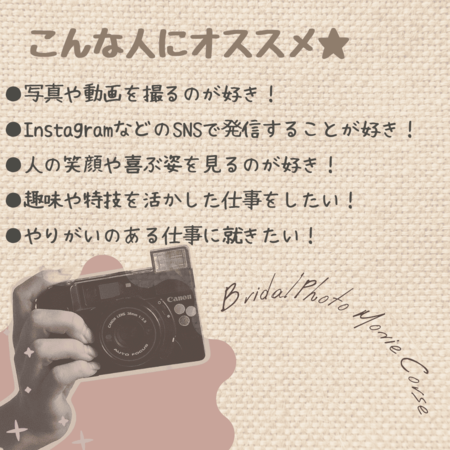 こんな人にオススメ★
●写真や動画を撮るのが好き！
●InstagramなどのSNSで発信することが好き！
●人の笑顔や喜ぶ姿を見るのが好き！
●趣味や特技を活かした仕事をしたい！
●やりがいのある仕事に就きたい！
Canon
AUTO FOCUS
Bridal Photo Movie Corse